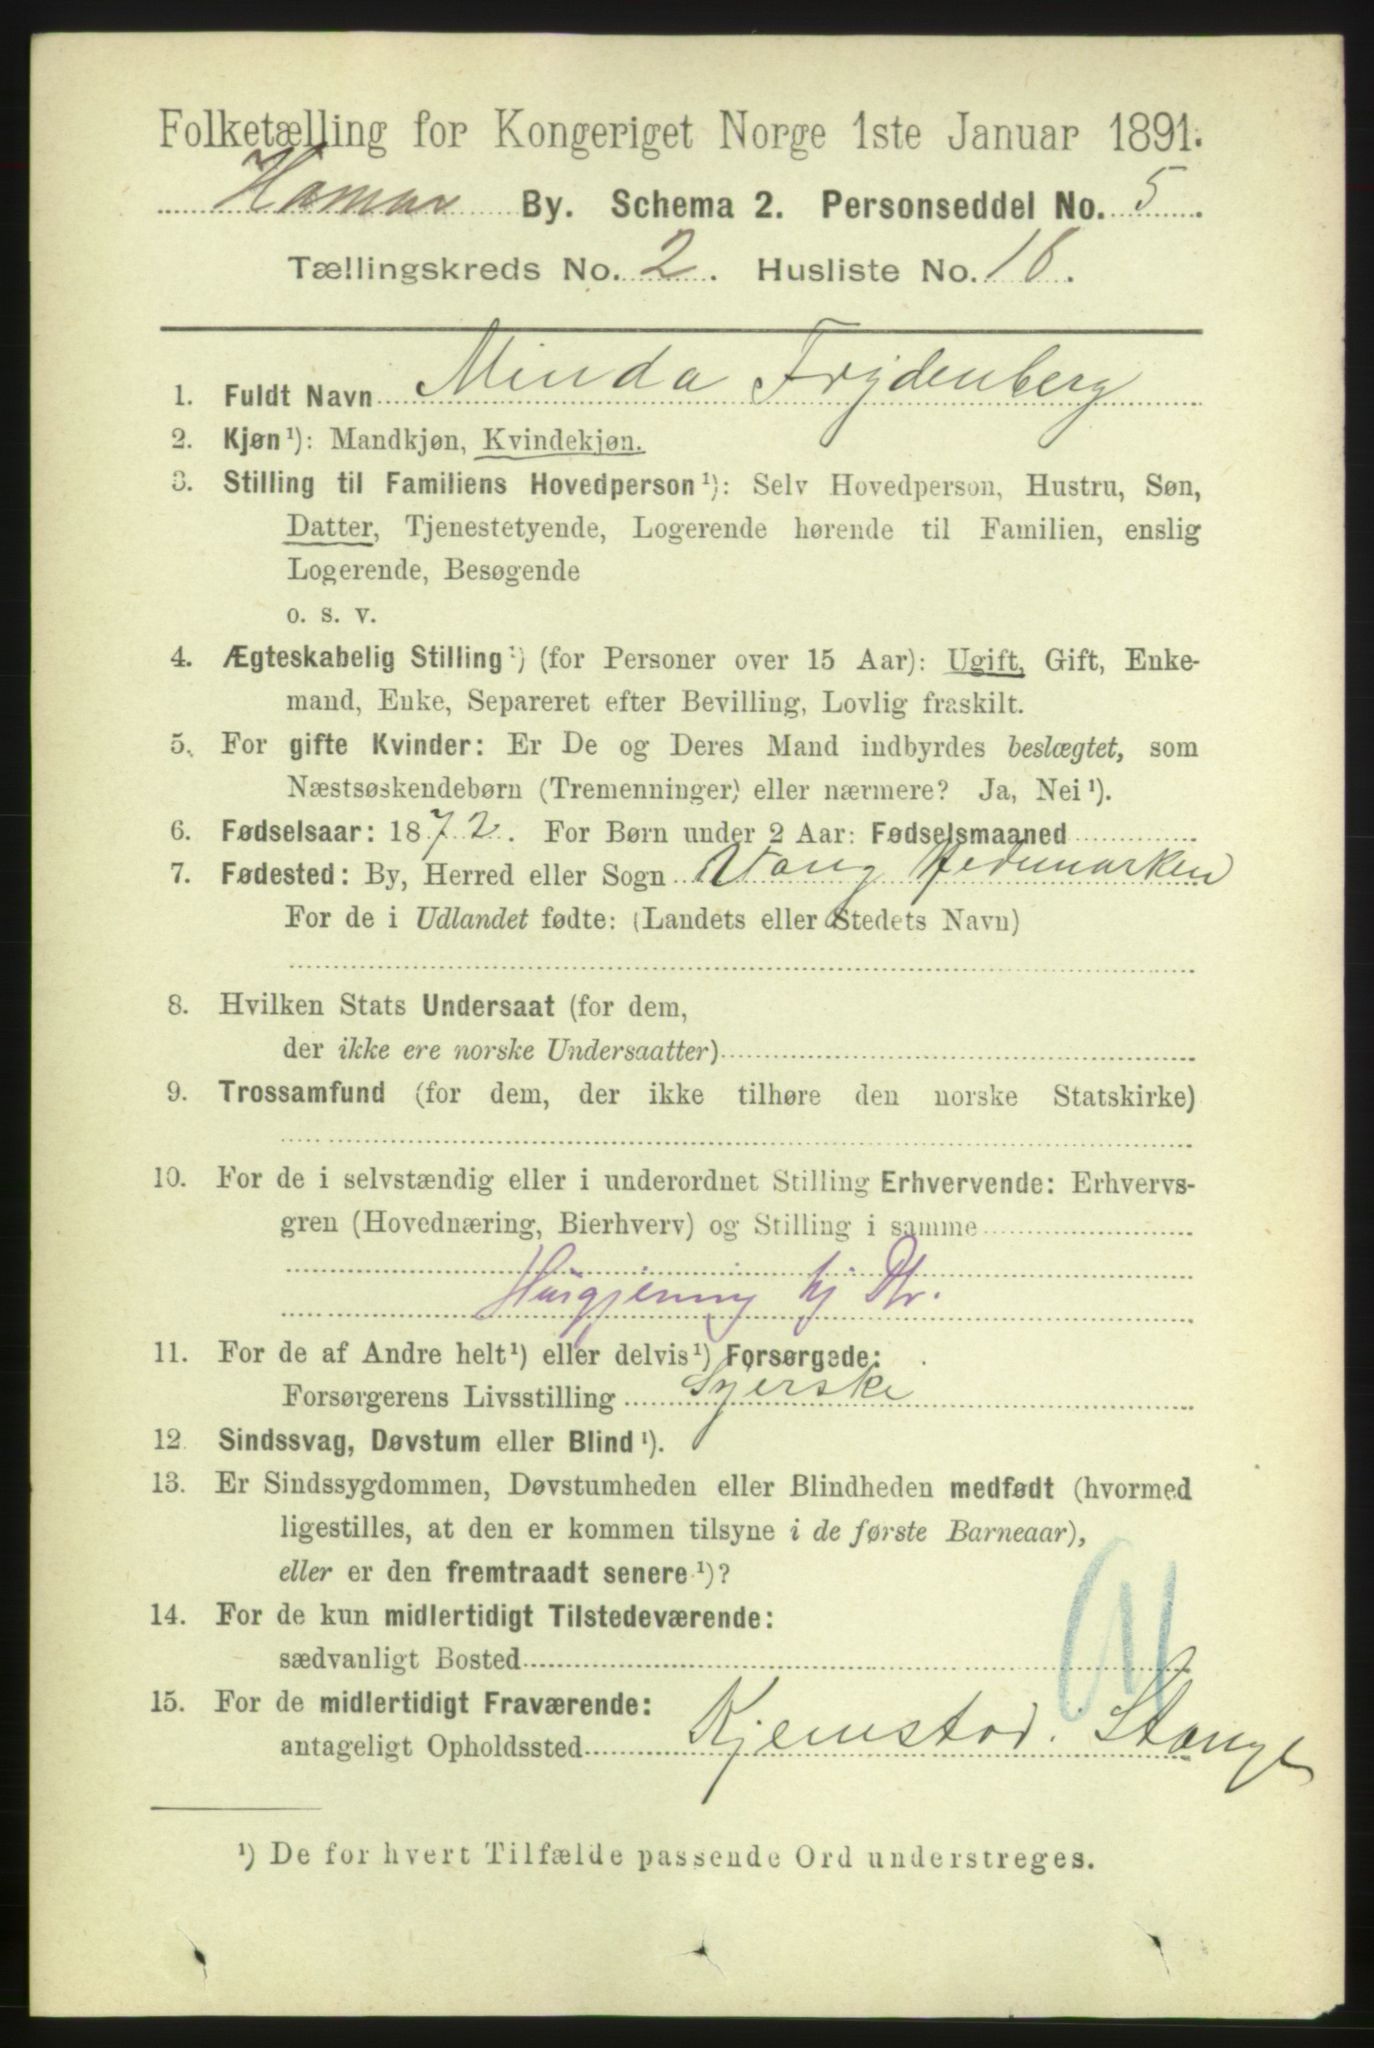 Folketælling for Kongeriget Norge 1ste Januar 1891.
Hamar By. Schema 2. Personseddel No. 5.
Tællingskreds No. 2. Husliste No. 16.
1. Fuldt Navn Minda Frydenberg
2. Kjøn¹): Mandkjøn, Kvindekjøn.
3. Stilling til Familiens Hovedperson¹): Selv Hovedperson, Hustru, Søn,
Datter, Tjenestetyende, Logerende hørende til Familien, enslig
Logerende, Besøgende
o. s. v.
4. Ægteskabelig Stilling¹) (for Personer over 15 Aar): Ugift, Gift, Enke-
mand, Enke, Separeret efter Bevilling, Lovlig fraskilt.
5. For gifte Kvinder: Er De og Deres Mand indbyrdes beslægtet, som
Næstsøskendebørn (Tremenninger) eller nærmere? Ja, Nei¹).
6. Fødselsaar: 1872. For Børn under 2 Aar: Fødselsmaaned
7. Fødested: By, Herred eller Sogn Vang Hedemarken
For de i Udlandet fødte: (Landets eller Stedets Navn)
8. Hvilken Stats Undersaat (for dem,
der ikke ere norske Undersaatter)
9. Trossamfund (for dem, der ikke tilhøre den norske Statskirke)
10. For de i selvstændig eller i underordnet Stilling Erhvervende: Erhvervs-
gren (Hovednæring, Bierhverv) og Stilling i samme
Husgjerning hj Dtr.
11. For de af Andre helt¹) eller delvis¹) Forsørgede:
Forsørgerens Livsstilling Syerske
12. Sindssvag, Døvstum eller Blind¹).
13. Er Sindssygdommen, Døvstumheden eller Blindheden medfødt (hvormed
ligestilles, at den er kommen tilsyne i de første Barneaar),
eller er den fremtraadt senere¹)?
14. For de kun midlertidigt Tilstedeværende:
sædvanligt Bosted
15. For de midlertidigt Fraværende:
antageligt Opholdssted Kjemstad. Stange
¹) De for hvert Tilfælde passende Ord understreges.